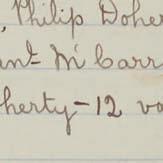 , Philip Dohe
ant- McCarr
herty-12 vo